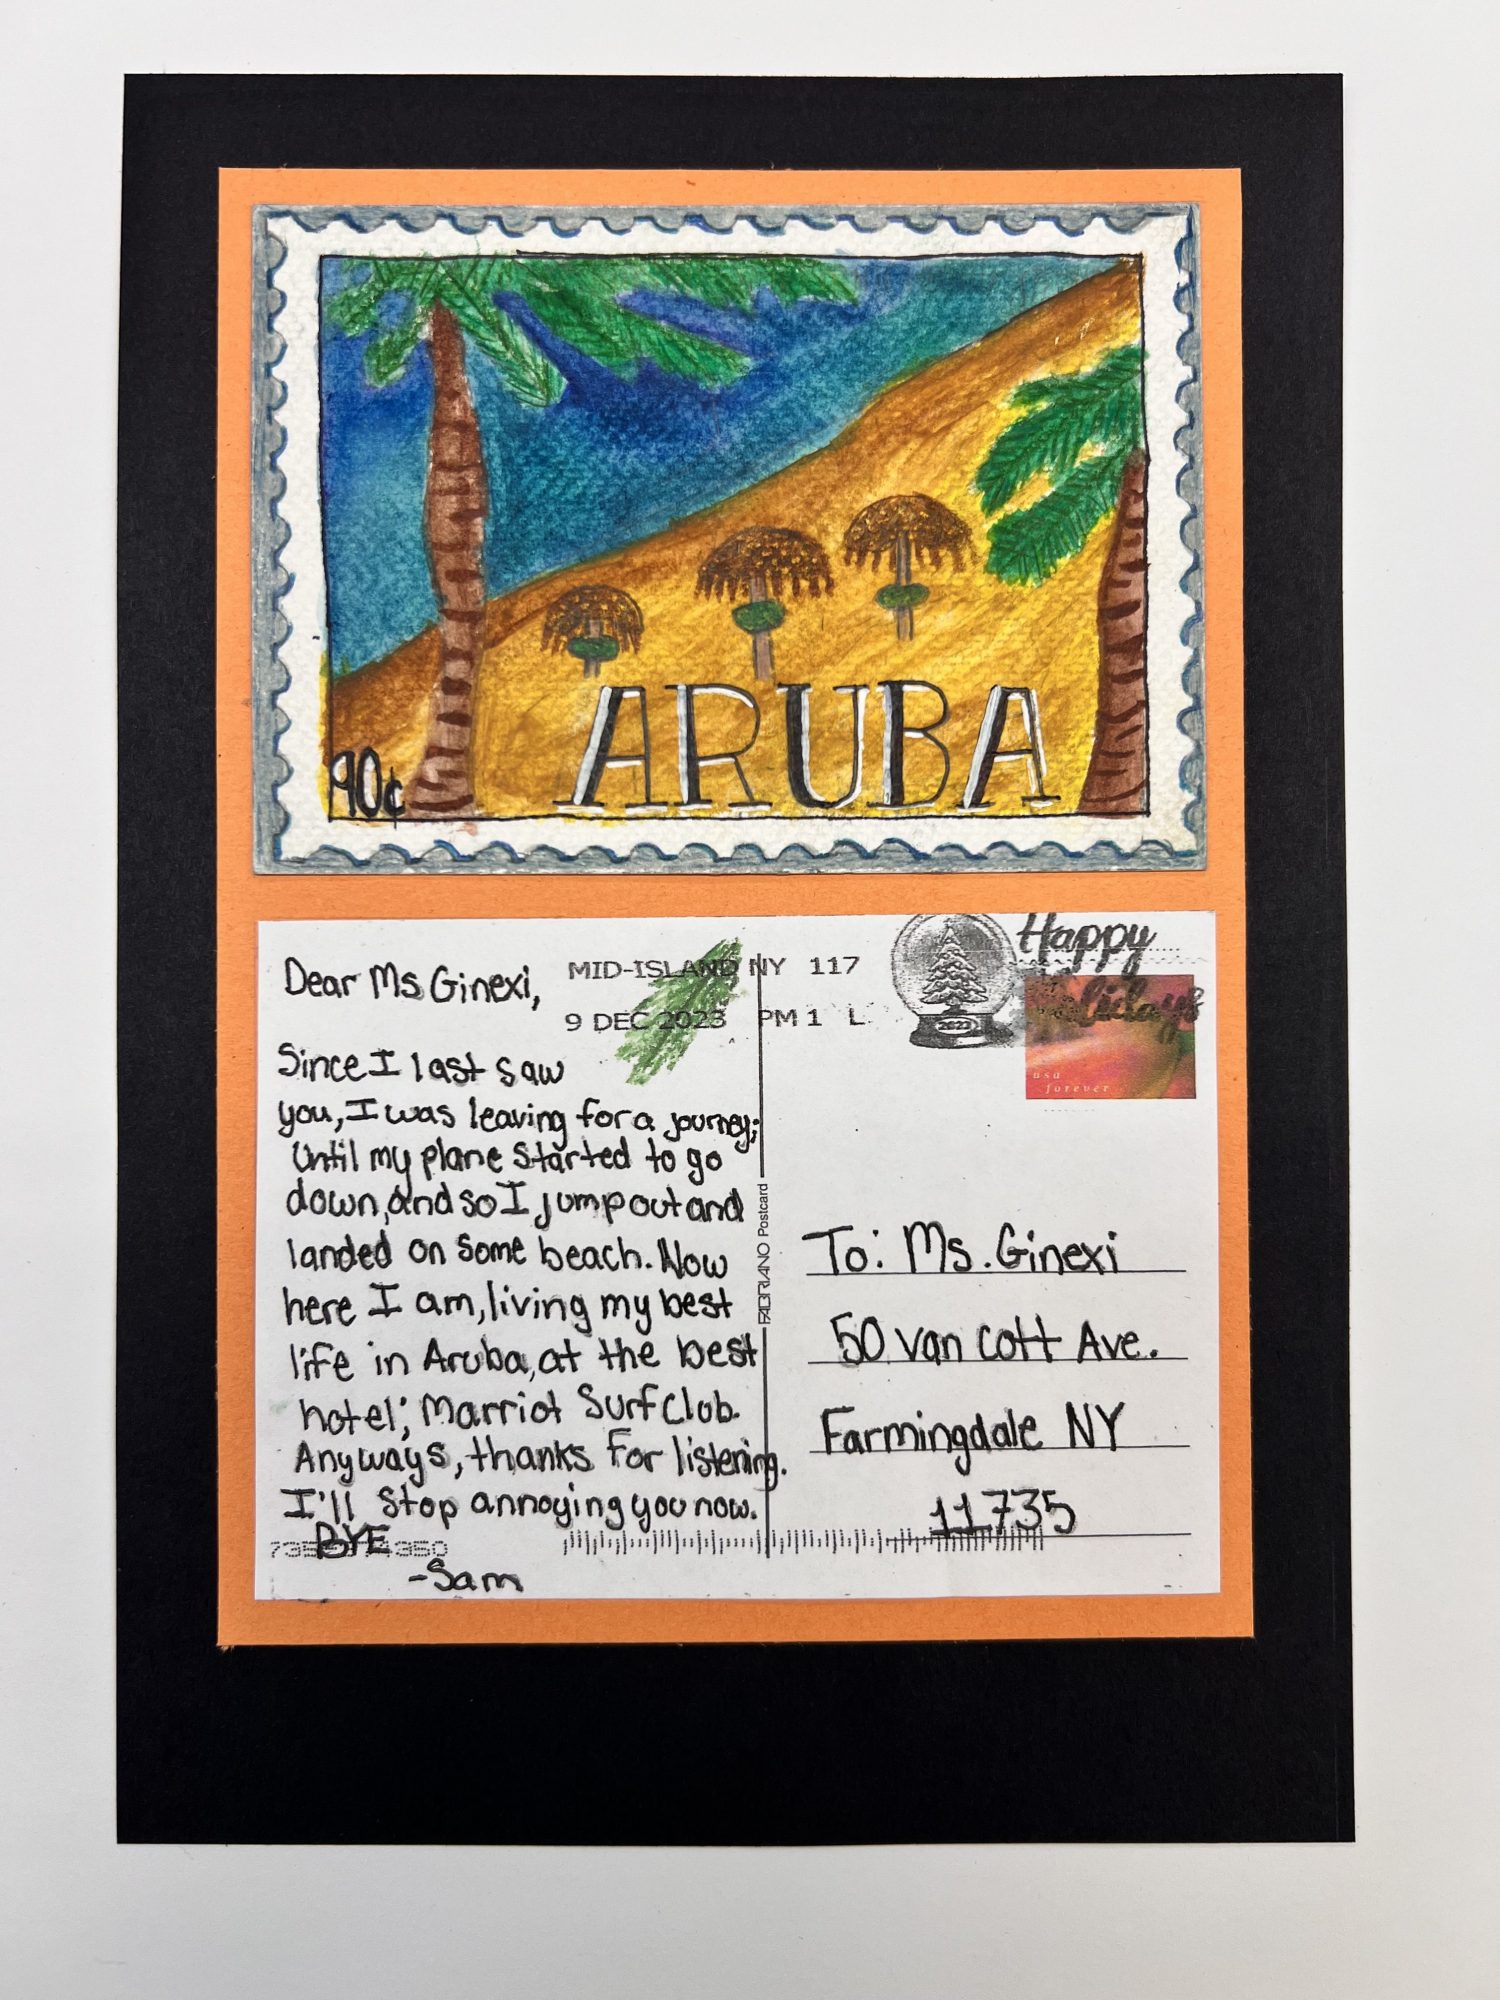 90¢
ARUBA
MID-ISLAND NY 117
9 DEC 2023 PM 1 L
2023
Happy
Holidays
usa
forever
Dear Ms Ginexi,
Since I last saw
you, I was leaving for a journey;
Until my plane started to go
down, and so I jump out and
landed on some beach. Now
here I am, living my best
life in Aruba, at the best
hotel; Marriot Surf Club.
Anyways, thanks for listening.
I'll stop annoying you now.
BYE
-Sam
FABRIANO Postcard
To: Ms. Ginexi
50 van cott Ave.
Farmingdale NY
11735